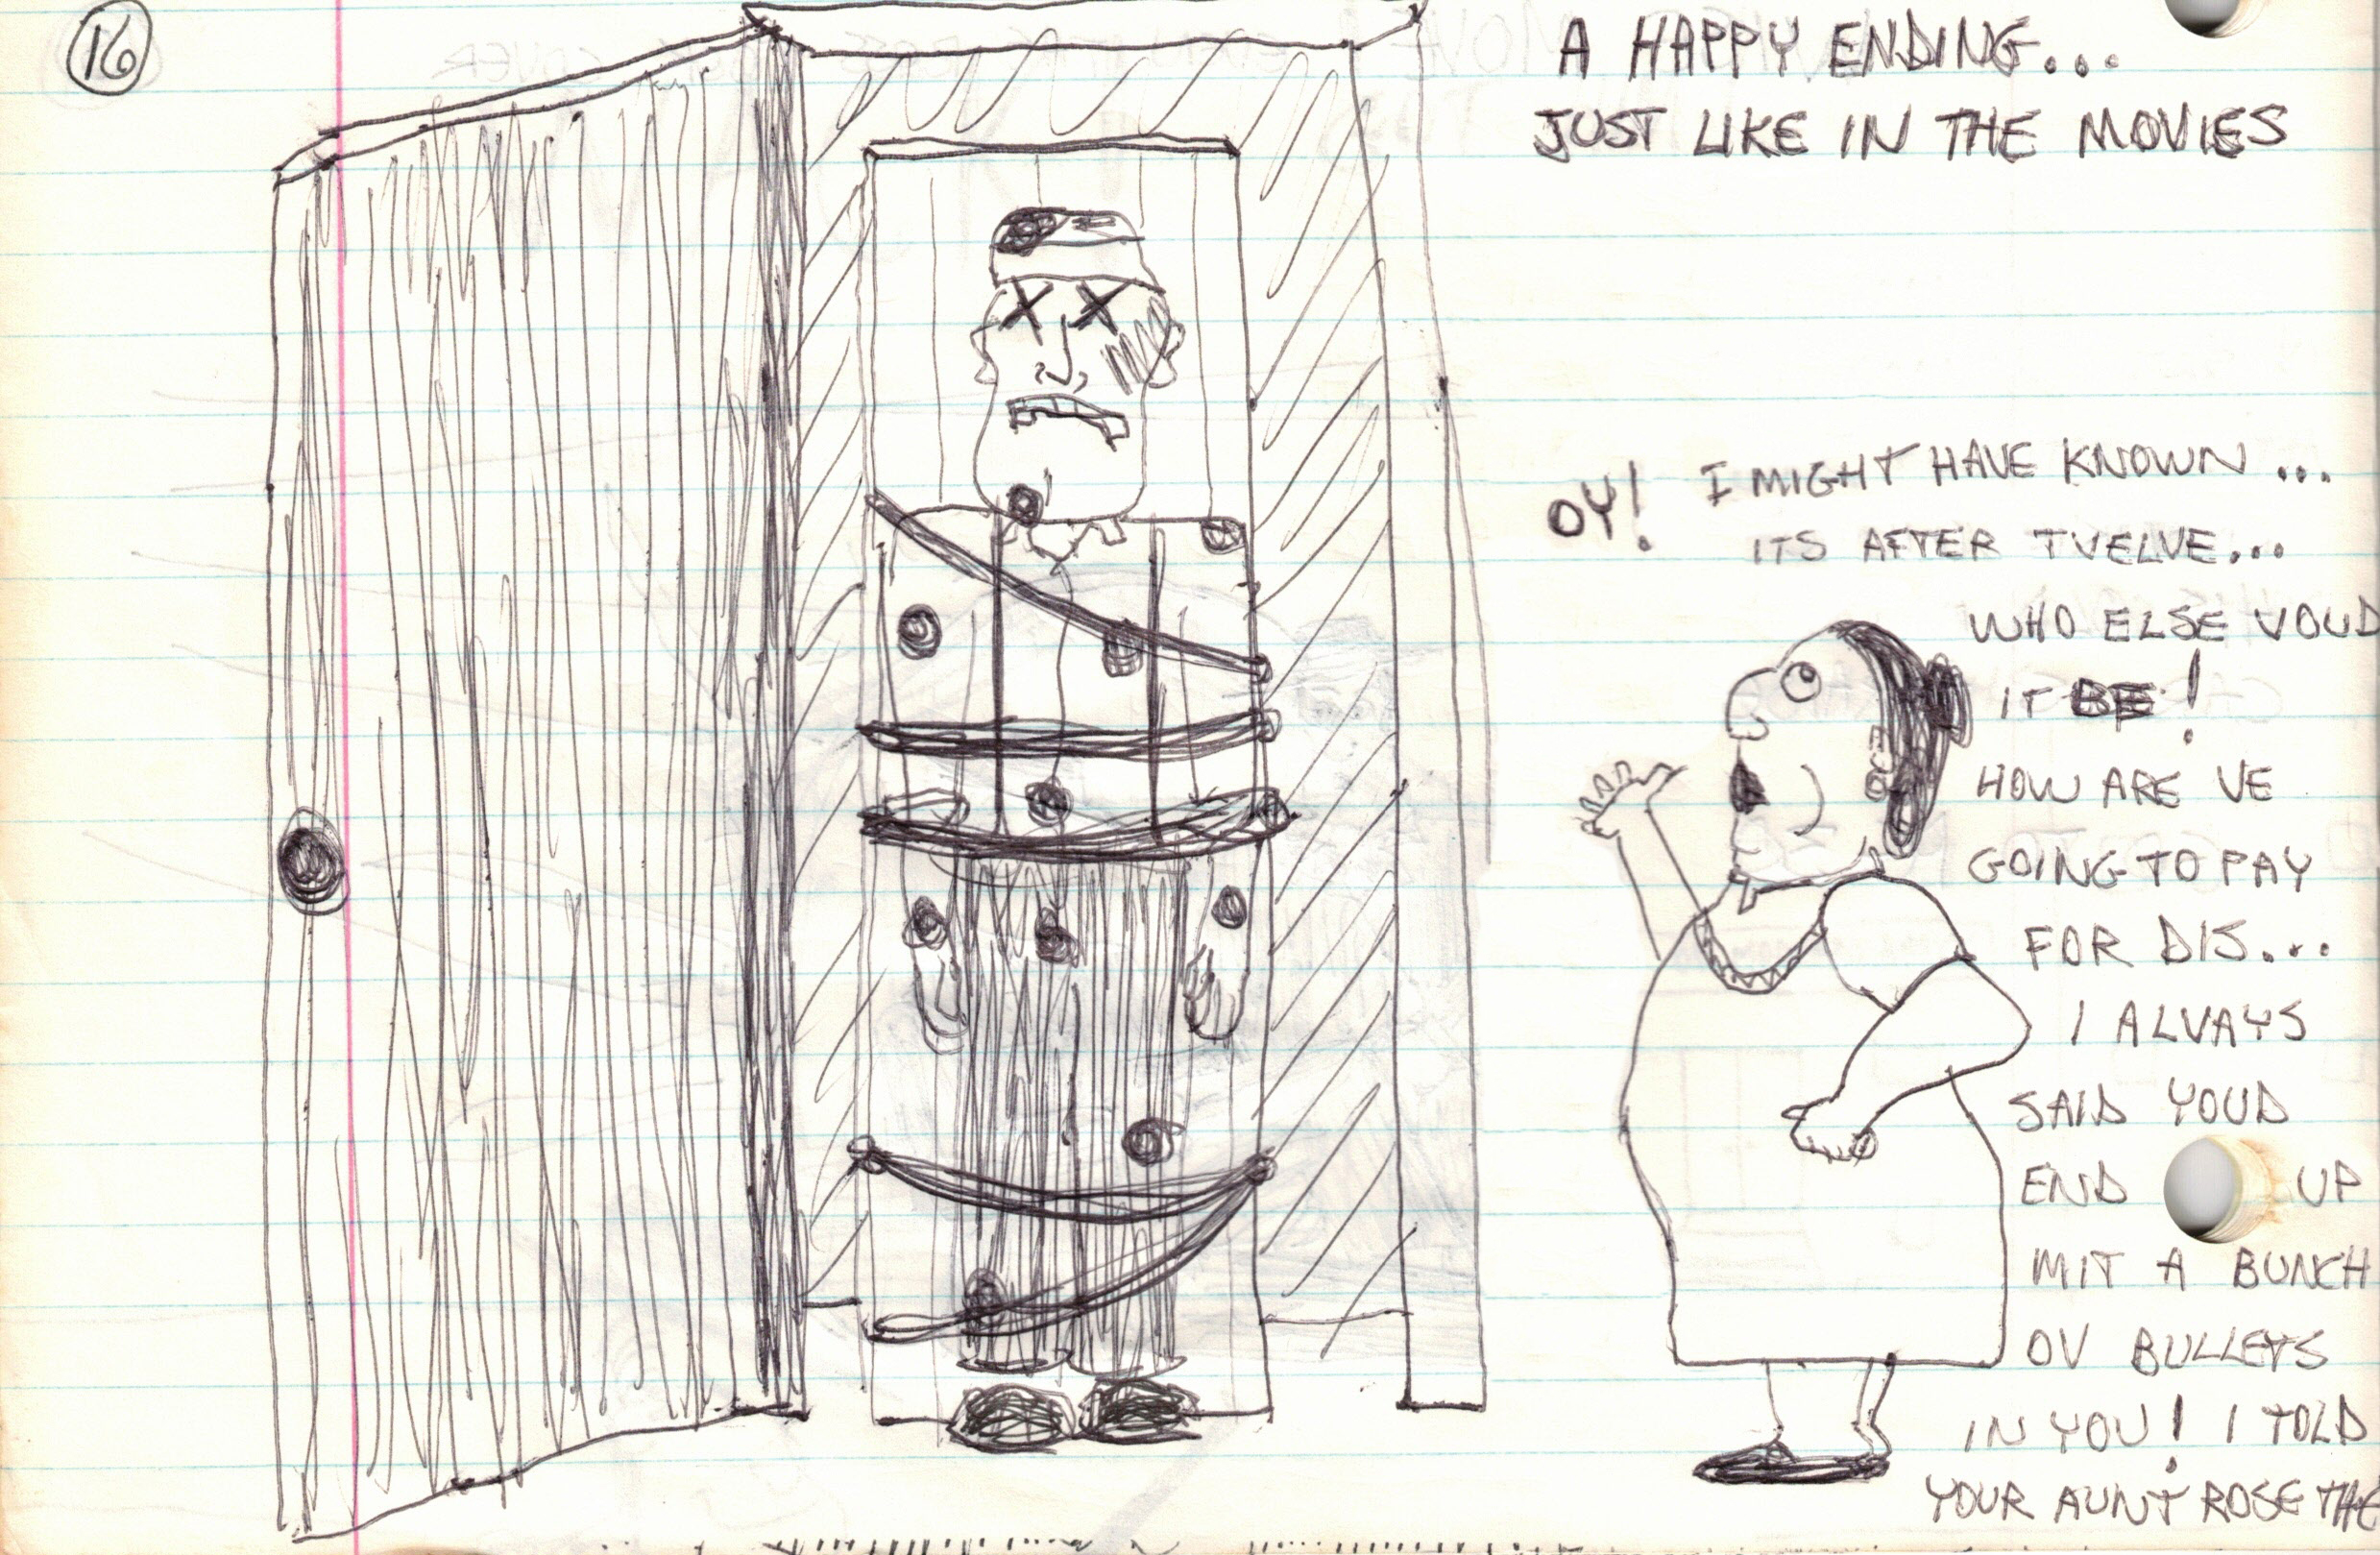 16
A HAPPY ENDING...
JUST LIKE IN THE MOVIES
OY! I MIGHT HAVE KNOWN...
ITS AFTER TVELVE...
WHO ELSE VOUD
IT BE!
HOW ARE VE
GOING TO PAY
FOR DIS...
I ALVAYS
SAID YOUD
END UP
MIT A BUNCH
OV BULLETS
IN YOU! I TOLD
YOUR AUNT ROSE THE